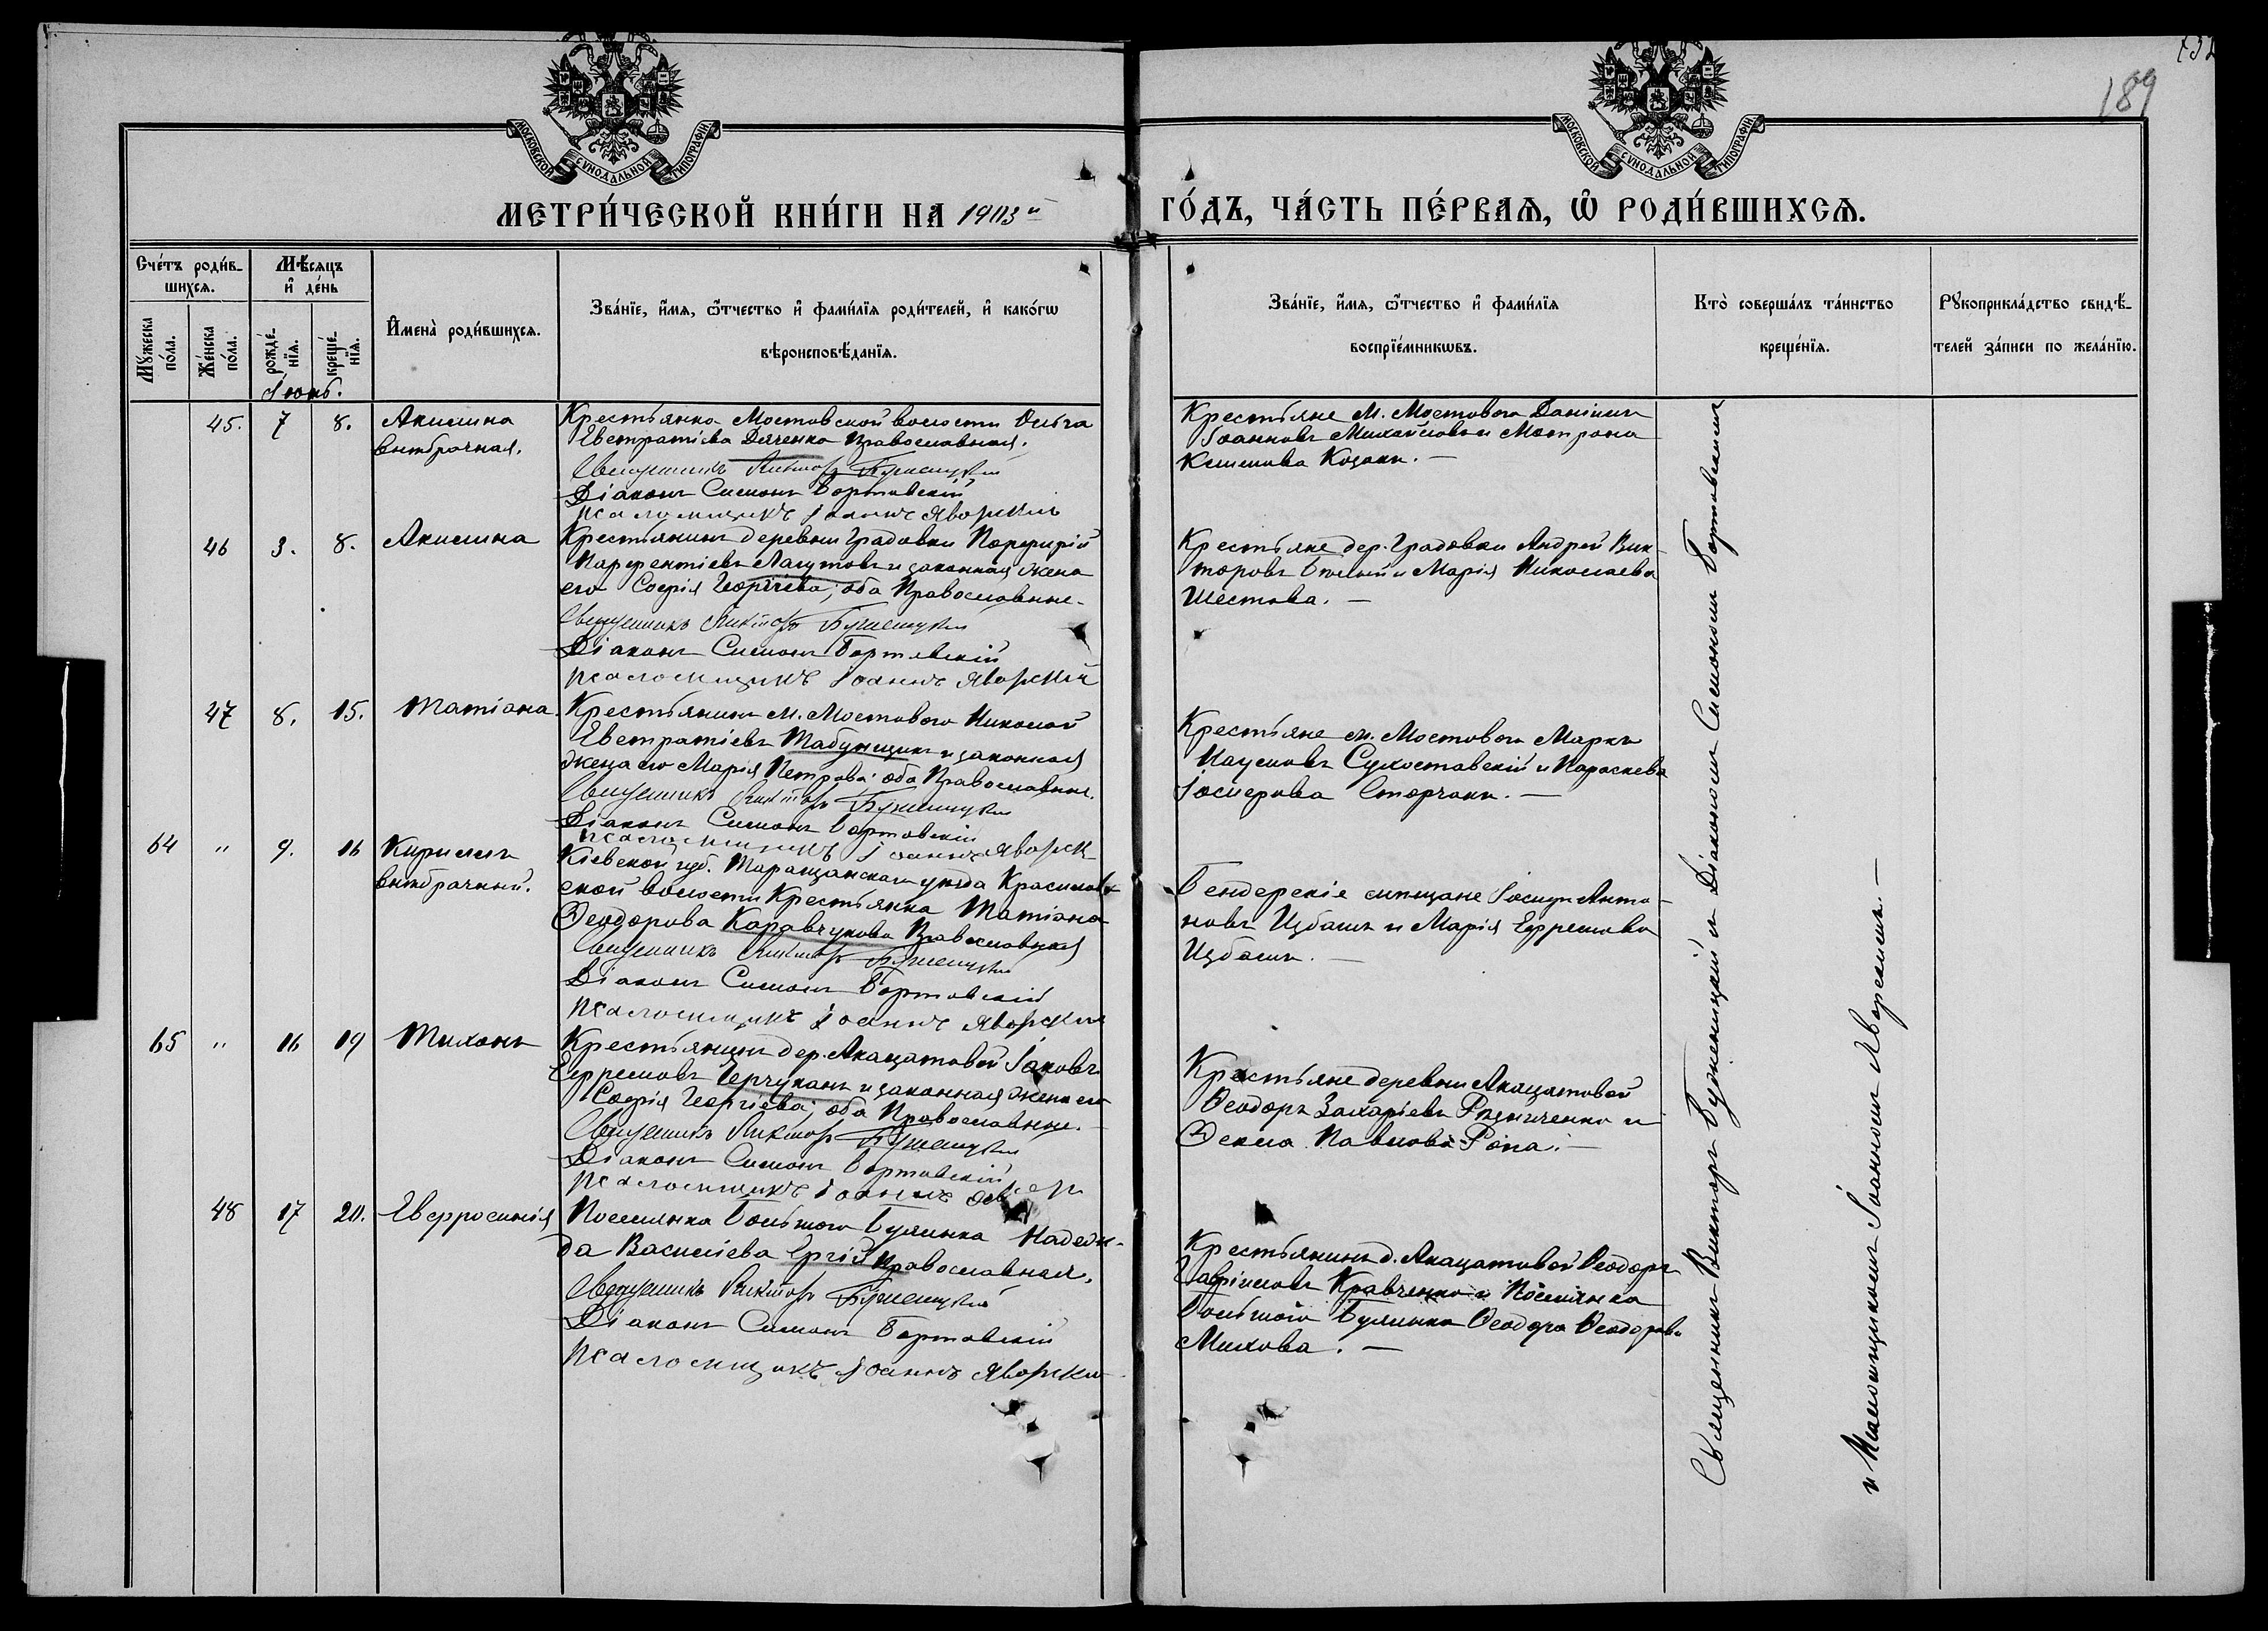 189
МОСКОВСКОЙ СѴНОДАЛЬНОЙ ТИПОГРАФІИ.
МОСКОВСКОЙ СѴНОДАЛЬНОЙ ТИПОГРАФІИ.
МЕТРИ́ЧЕСКОЙ КНИ́ГИ НА 1903й ГО́ДЪ, ЧА́СТЬ ПЕ́РВАѦ, Ѡ҆ РОДИ́ВШИХСѦ.
Сче́тъ роди́в-
шихсѧ.
Мѣ́сѧцъ
и҆ де́нь
Мꙋ́жеска
по́ла.
Же́нска
по́ла.
рожде́-
нїѧ.
креще́-
нїѧ.
И҆мена̀ роди́вшихсѧ.
Зва́нїе, и҆́мѧ, ѻ҆́тчество и҆ фами́лїѧ роди́телей, и҆ како́гѡ
вѣроисповѣ́данїѧ.
Зва́нїе, и҆́мѧ, ѻ҆́тчество и҆ фами́лїѧ
воспрїе́мникѡвъ.
Кто̀ соверша́лъ та́инство
креще́нїѧ.
Рꙋкоприкла́дство свидѣ́-
телей за́писи по жела́нїю.
Іюнь.
45. 7 8. Акилина
внѣбрачная.
Крестьянка Мостовской волости Ольга
Евстратіева Дяченко Православная.
Священникъ Викторъ Буженицкій
Діаконъ Симонъ Бортовскій
псаломщикъ Іоаннъ Яворскій
Крестьяне м. Мостового Даніилъ
Іоанновъ Михайловъ и Матрона
Климова Козакъ. —
46 3. 8. Акилина
Крестьянинъ деревни Градовки Порфирій
Парфентіевъ Лагутовъ и законная жена
его Софія Георгіева; оба Православные.
Священникъ Викторъ Буженицкій
Діаконъ Симонъ Бортовскій
псаломщикъ Іоаннъ Яворскій
Крестьяне дер. Градовки Андрей Вик-
торовъ Бѣлый и Марія Николаева
Шестова. —
47 8. 15. Татіана.
Крестьянинъ м. Мостового Николай
Евстратіевъ Табунщикъ и законная
жена его Марія Петрова; оба Православные.
Священникъ Викторъ Буженицкій
Діаконъ Симонъ Бортовскій
псаломщикъ Іоаннъ Яворск
Крестьяне м. Мостового Маркъ
Наумовъ Сухоставскій и Параскева
Іосифова Сторчакъ. —
64 " 9. 16 Кириллъ
внѣбрачный.
Кіевской губ. Таращанскаго уѣзда Красилов-
ской волости Крестьянка Татіана
Ѳеодорова Каравчукова Православная
Священникъ Викторъ Буженицкій
Діаконъ Симонъ Бортовскій
псаломщикъ Іоаннъ Яворскій
Бендерскіе мѣщане Іосифъ Анто-
новъ Избашъ и Марія Ефремова
Избашъ. —
65 " 16 19 Тихонъ
Крестьянинъ дер. Акацатовой Іаковъ
Ефремовъ Черчуканъ и законная жена его
Софія Георгіева; оба Православные.
Священникъ Викторъ Буженицкій
Діаконъ Симонъ Бортовскій
псаломщикъ Іоаннъ
Крестьяне деревни Акацатовой
Ѳеодоръ Захаріевъ Рѣзниченко и
Ѳекла Павлова Рѣпа. —
48 17 20. Евфросинія
Поселянка Большого Буялыка Надеж-
да Василіева Ергій Православная.
Священникъ Викторъ Буженицкій
Діаконъ Симонъ Бортовскій
псаломщикъ Іоаннъ Яворскій
Крестьянинъ д. Акацатовой Ѳеодоръ
Гавріиловъ Кравченко и Поселянка
Большого Буялыка Ѳеодора Ѳеодорова
Милова. —
Священникъ Викторъ Буженицкій и Діакономъ Симономъ Бортовскимъ
и Псаломщикомъ Іоанномъ Яворскимъ. —